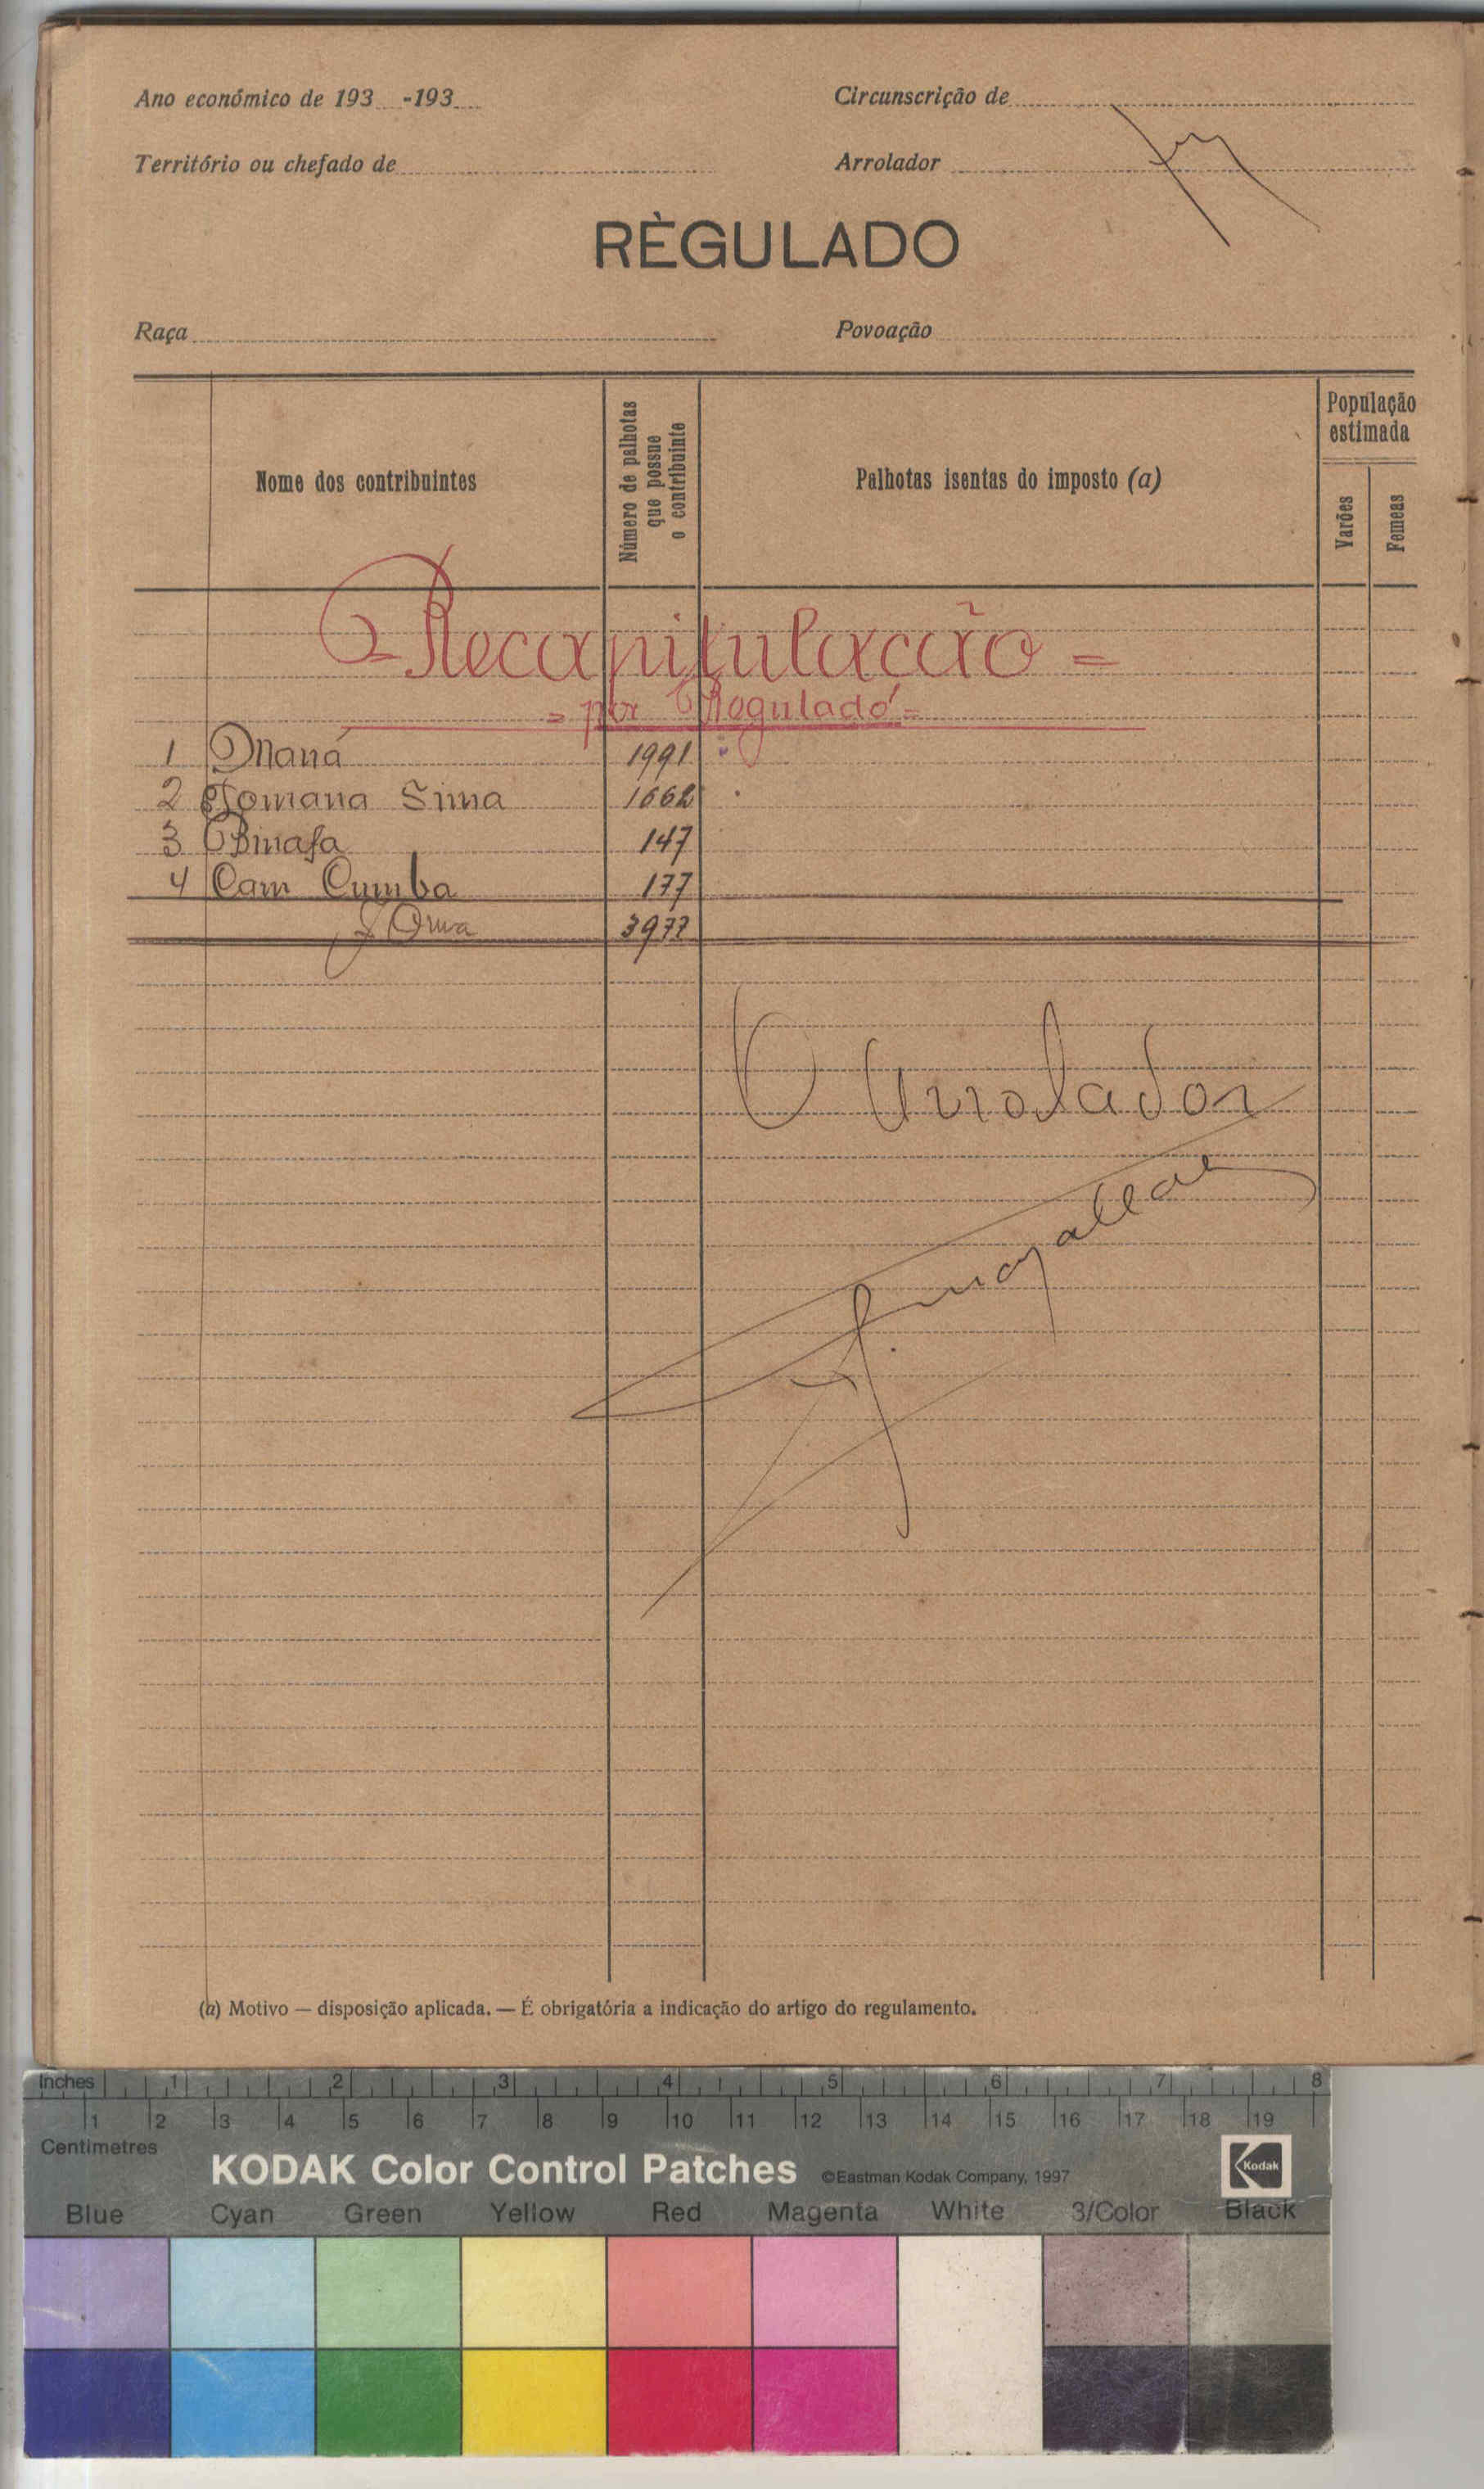 Ano económico de 193 -193
Circunscrição de
Território ou chefado de
Arrolador
RÈGULADO
Raça
Povoação
Nome dos contribuintes
Número de palhotas que possue o contribuinte
Palhotas isentas do imposto (a)
População estimada
Varões
Femeas
Recapitulacão =
= por Regulado =
1 Naná 1991
2 Tomana Sima 1662
3 Binafa 147
4 Cam Cumba 177
Soma 3977
O Arrolador
(a) Motivo — disposição aplicada. — É obrigatória a indicação do artigo do regulamento.
Inches 1 2 3 4 5 6 7 8
1 2 3 4 5 6 7 8 9 10 11 12 13 14 15 16 17 18 19
Centimetres
KODAK Color Control Patches ©Eastman Kodak Company, 1997 Kodak
Blue Cyan Green Yellow Red Magenta White 3/Color Black